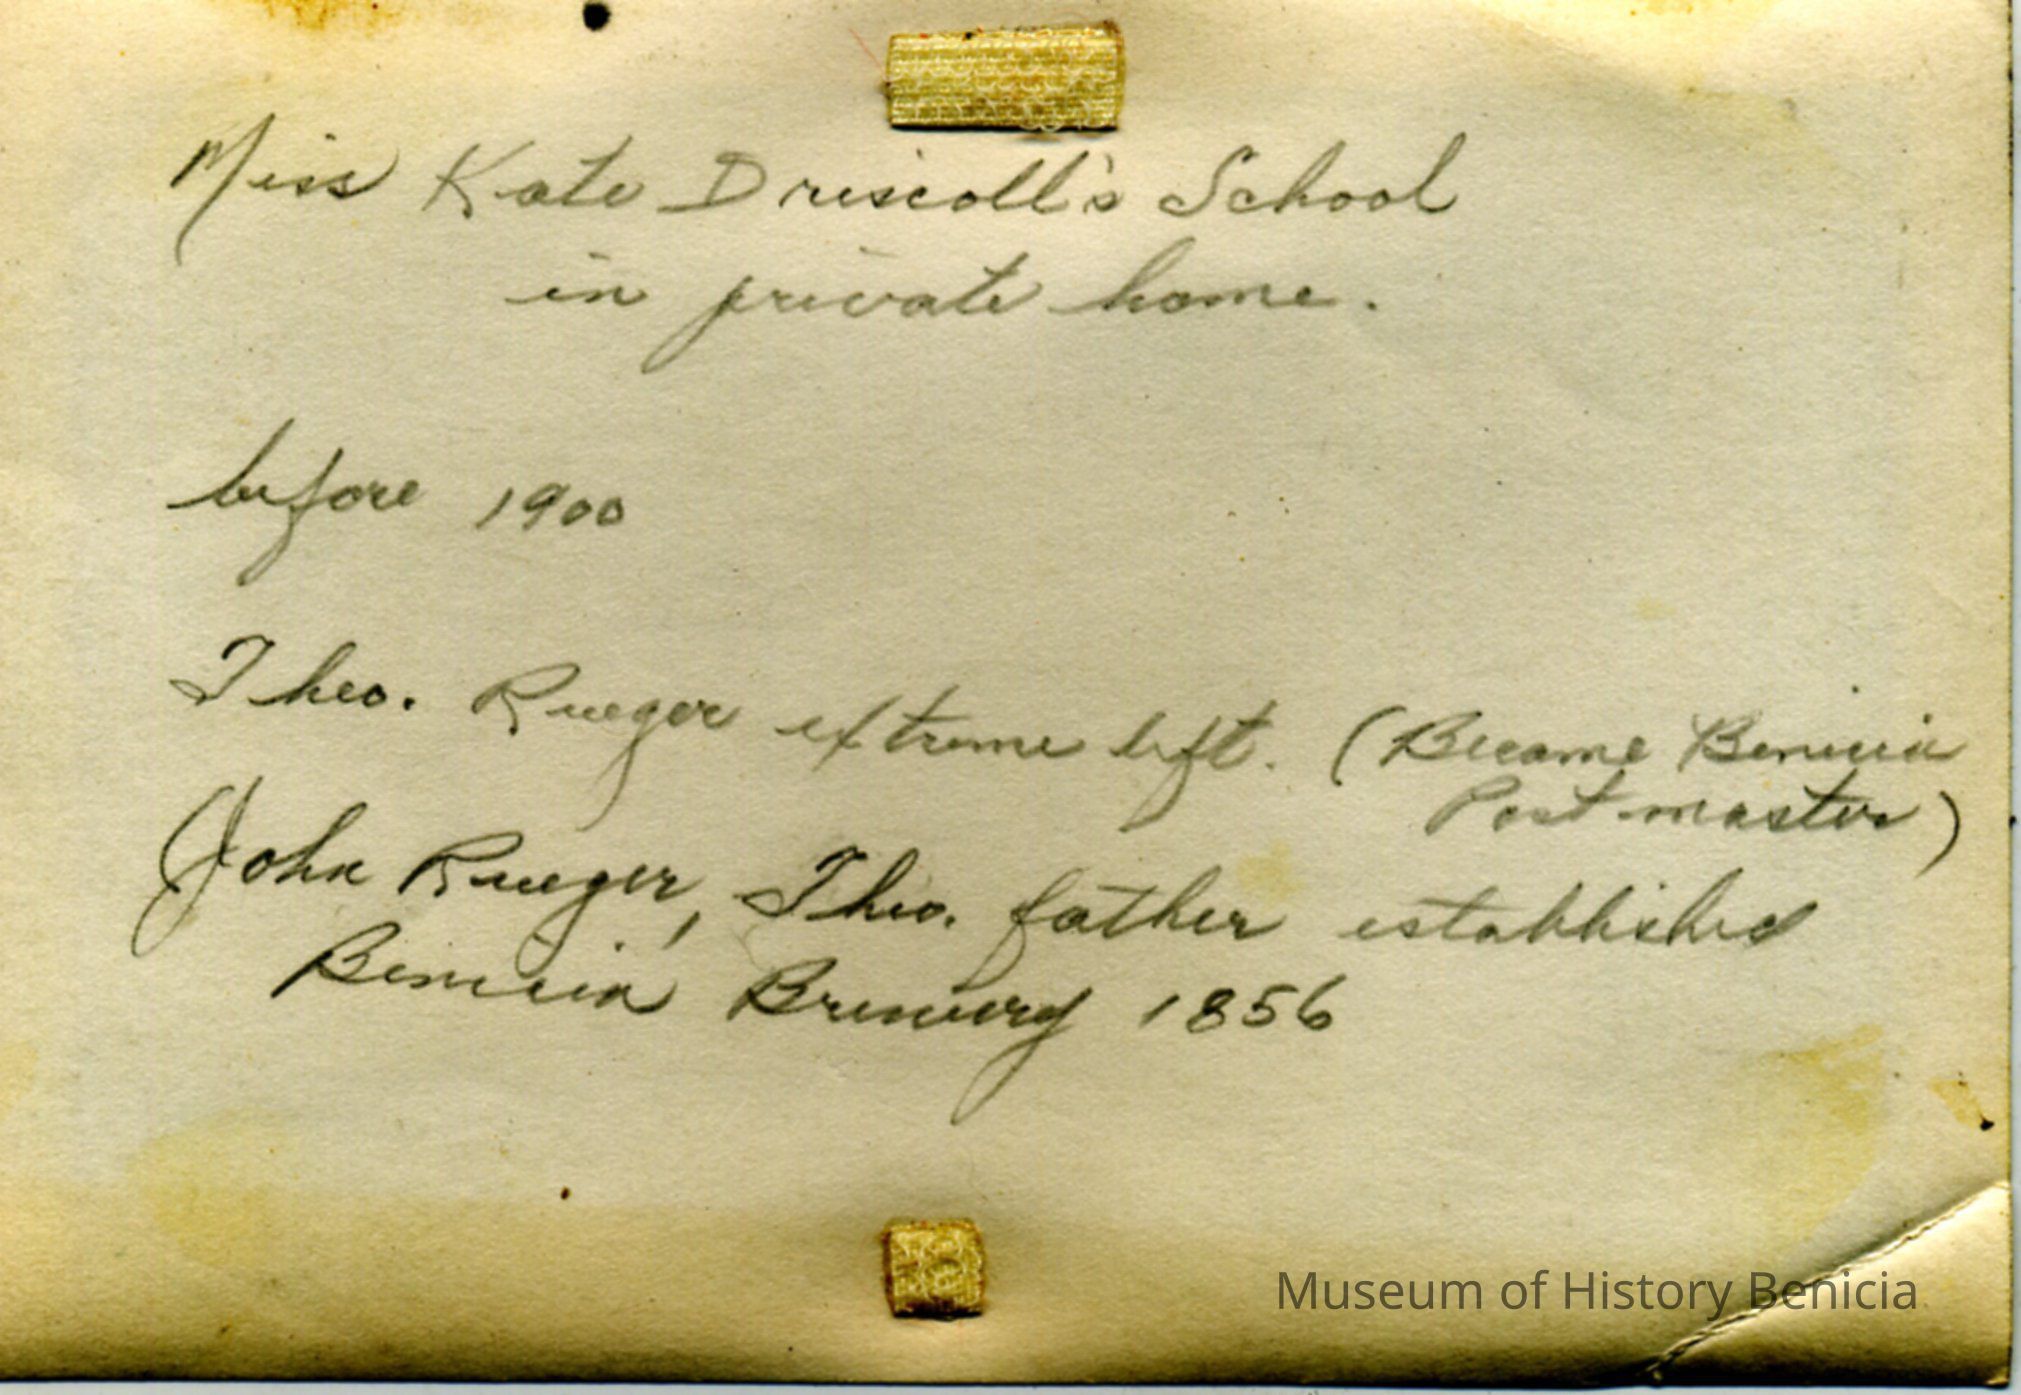 Miss Kate Driscoll's School
in private home.
before 1900
Theo. Rueger extreme left. (Became Benicia
Postmaster)
(John Rueger, Theo. father established
Benicia Brewery 1856
Museum of History Benicia